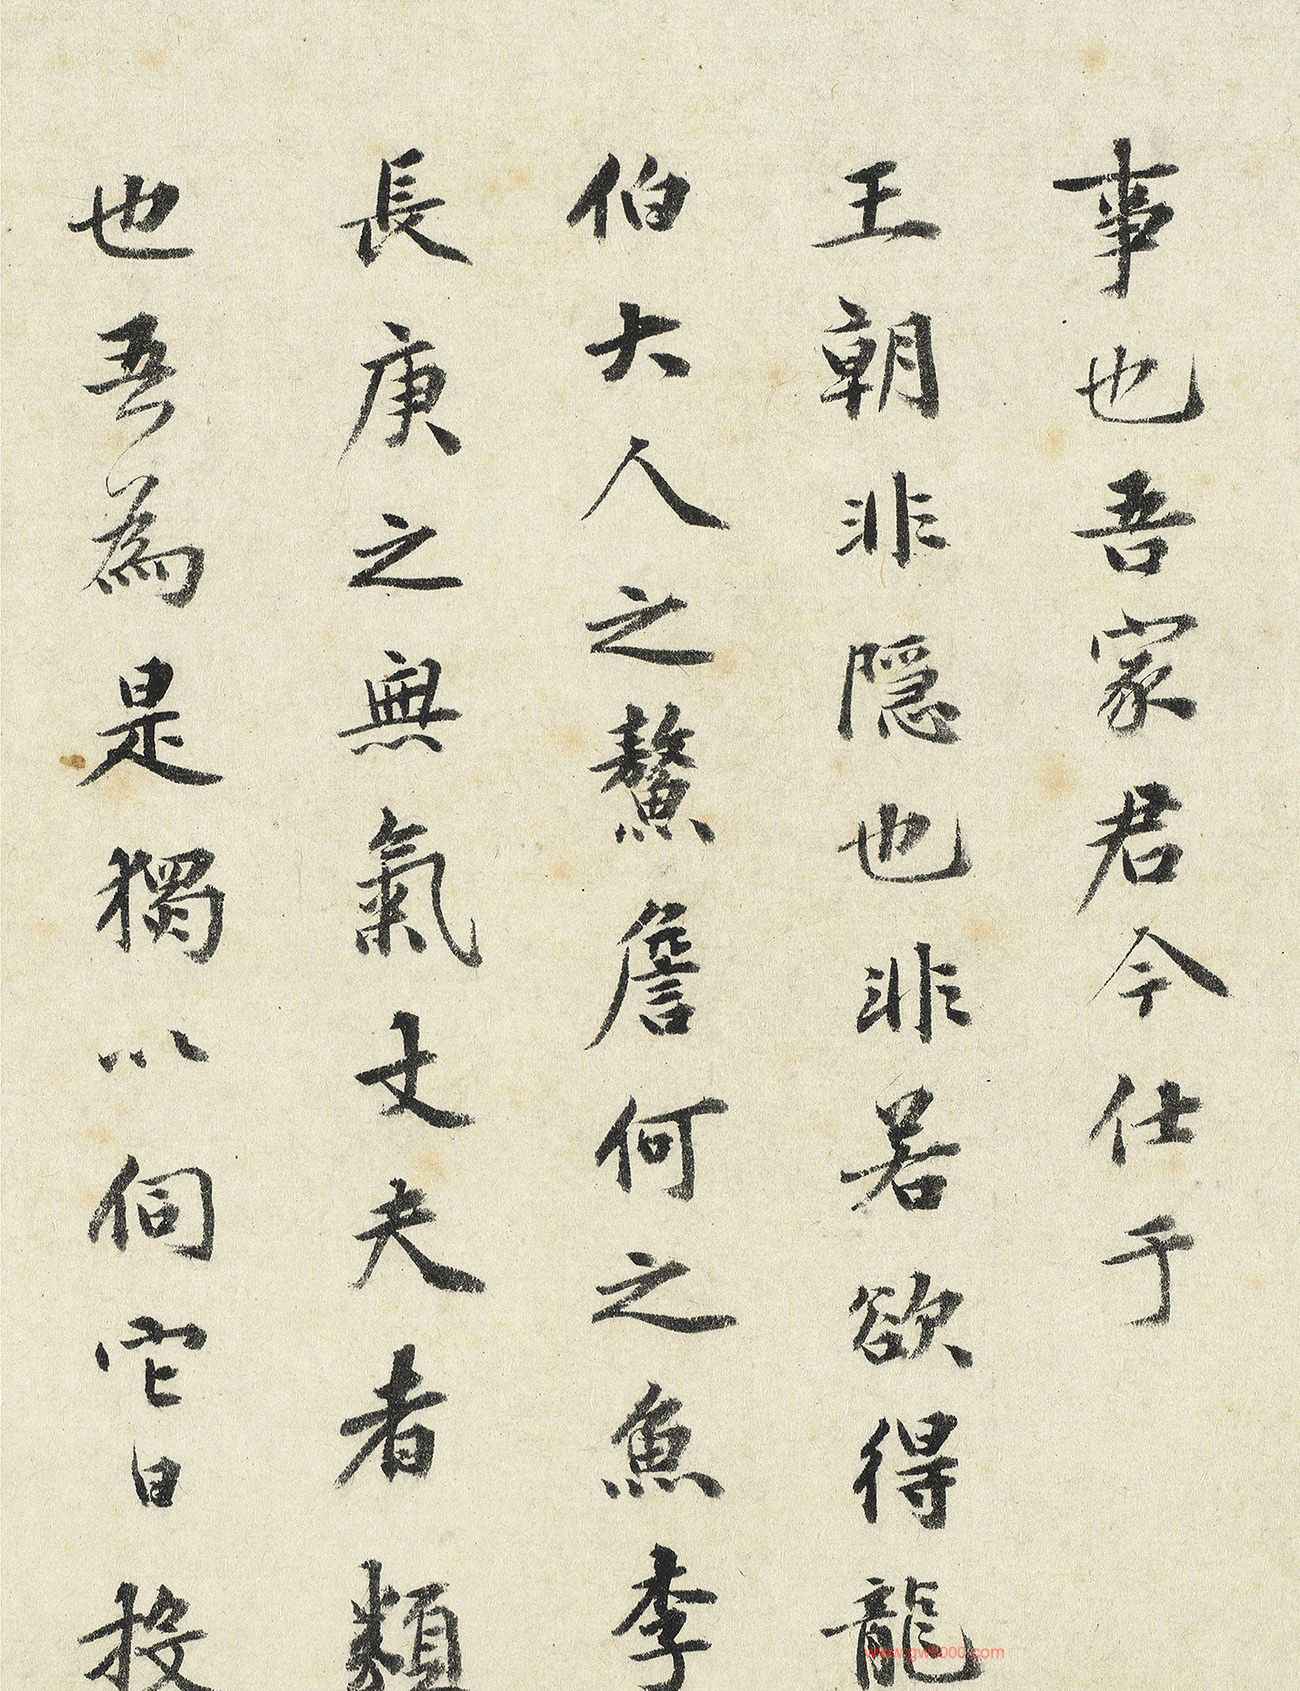 事也吾家君今仕于
王朝非隱也非若欲得龍
伯大人之鰲詹何之魚李
長庚之無氣丈夫者類
也吾為是獨以伺它日投
www.gw8000.com